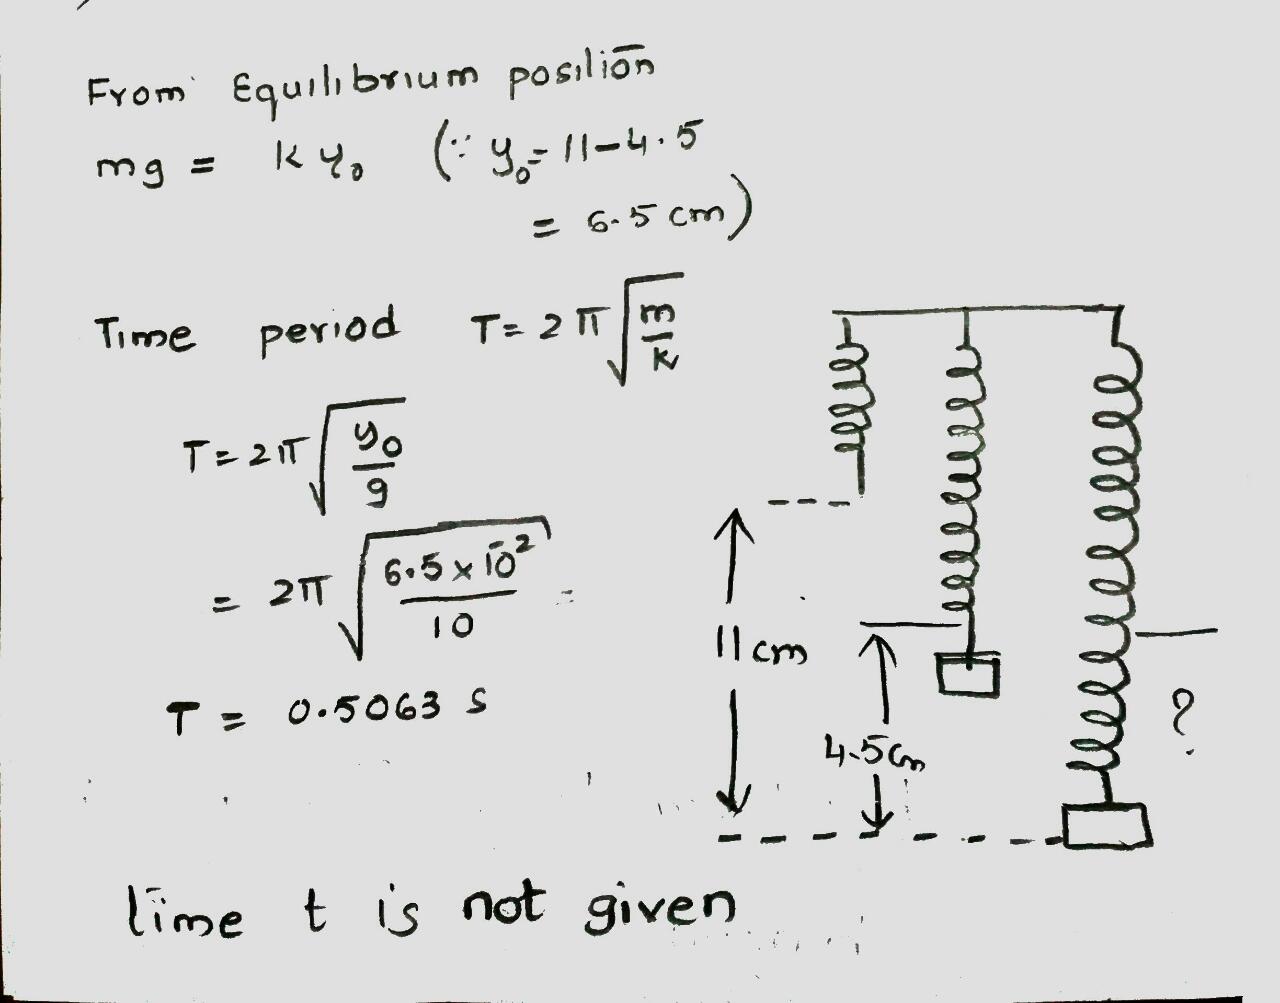 From Equilibrium position
mg = k y₀ (∵ y₀ = 11-4.5
= 6.5 cm)
Time period T = 2π √(m/k)
T = 2π √(y₀/g)
= 2π √(6.5 × 10⁻² / 10) =
T = 0.5063 s
11 cm
4.5 cm
?
time t is not given